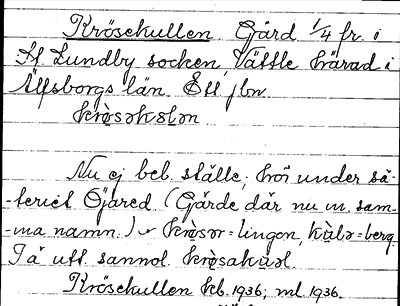 Krösekullen Gärd 1/4 fr. i
St. Lundby socken, Vättle härad i
Älfsborgs län. Ett jbn.
Nu ej beb. ställe, hör under sä-
-teriet Öjared (Gärde där nu m. sam-
-ma namn.) krøsər = lingon, = berg.
I ä utt. sannol.
Krösekullen kb. 1936; ml. 1936.